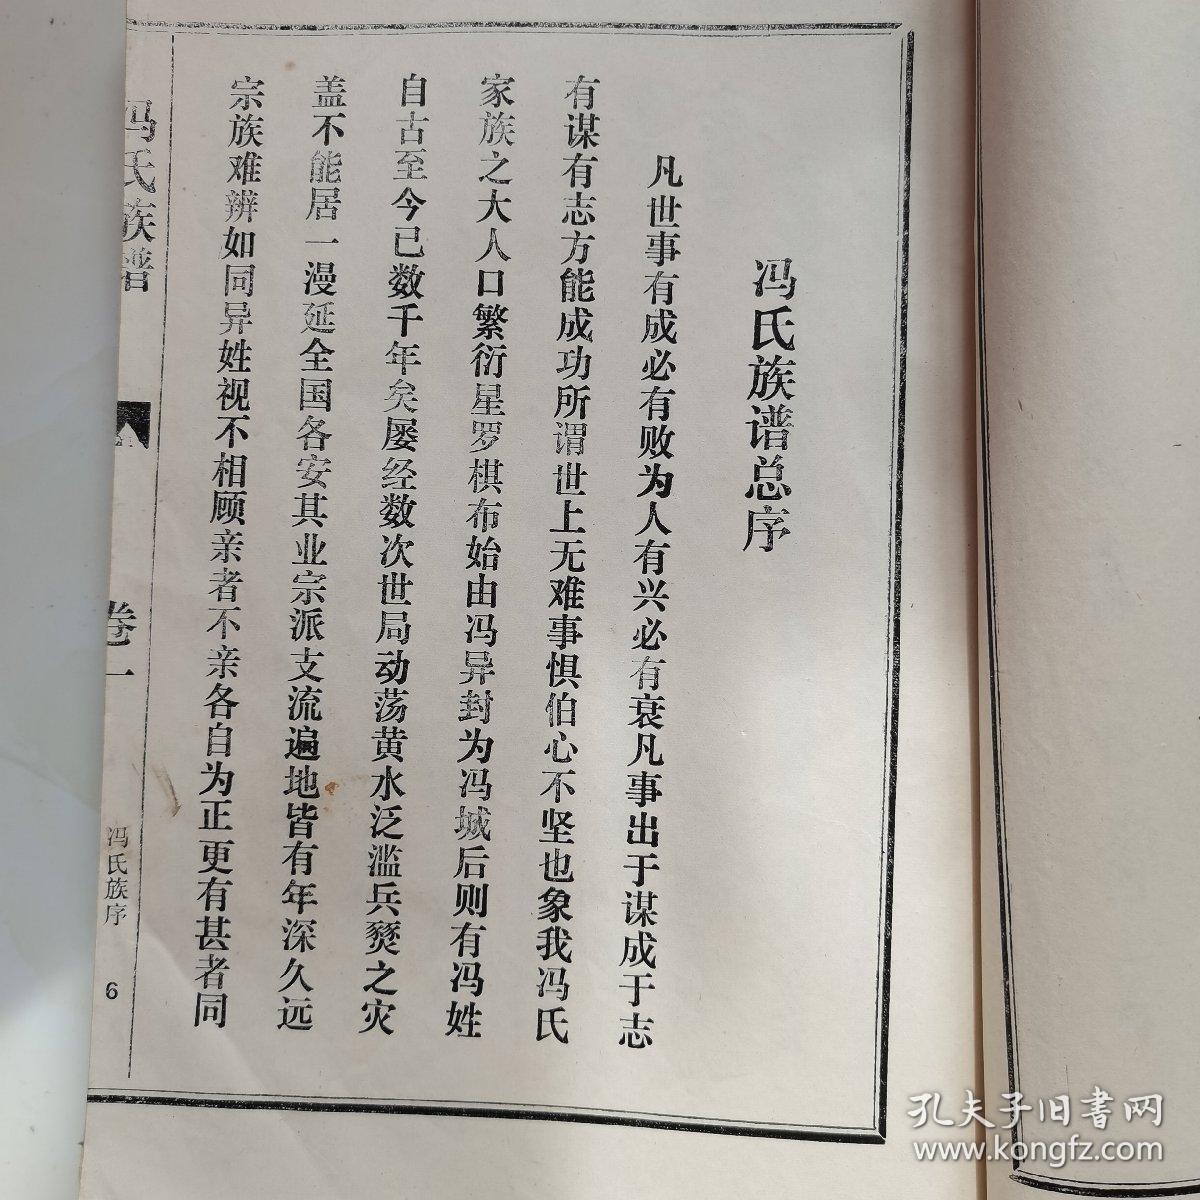 冯氏族谱总序
凡世事有成必有败为人有兴必有衰凡事出于谋成于志
有谋有志方能成功所谓世上无难事惧怕心不坚也象我冯氏
家族之大人口繁衍星罗棋布始由冯异封为冯城后则有冯姓
自古至今已数千年矣屡经数次世局动荡黄水泛滥兵燹之灾
盖不能居一漫延全国各安其业宗派支流遍地皆有年深久远
宗族难辨如同异姓视不相顾亲者不亲各自为正更有甚者同
冯氏族谱
卷一
冯氏族序
6
孔夫子旧书网
www.kongfz.com